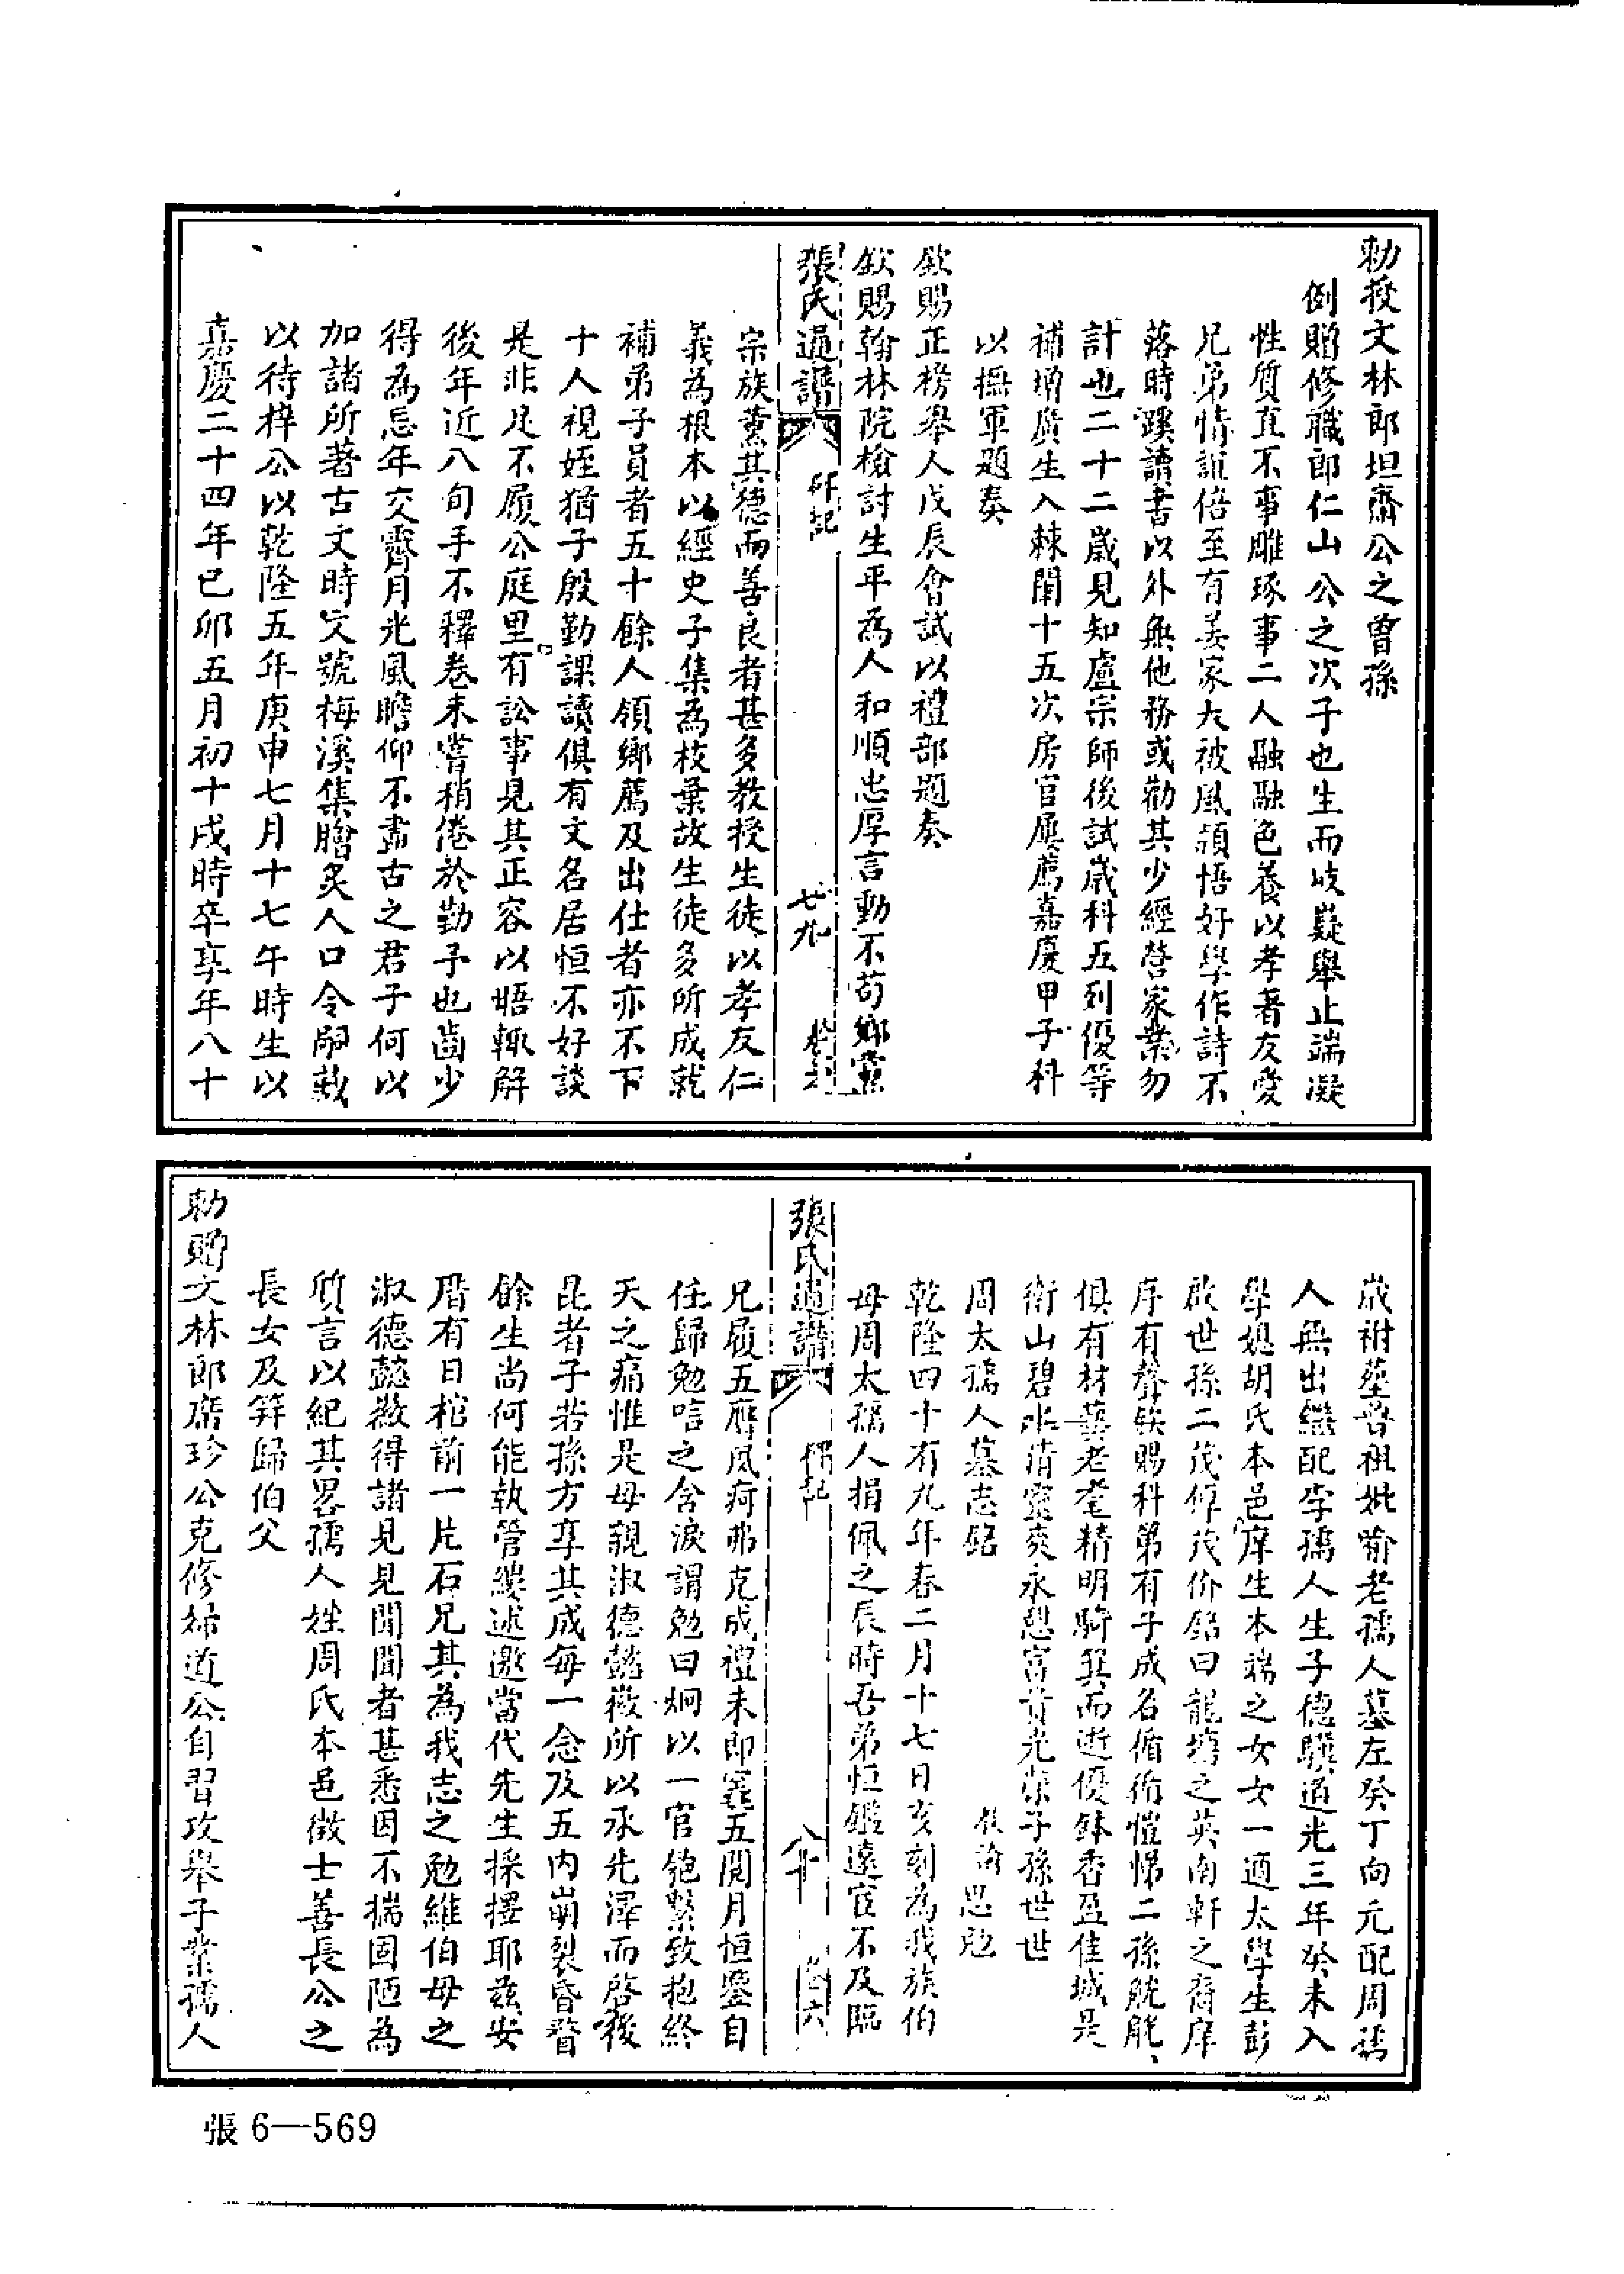 勅授文林郎坦齋公之曾孫
例贈修職郎仁山公之次子也生而岐嶷舉止端凝
性質直不事雕琢事二人融融色養以孝著友愛
兄弟情誼倍至有姜家大被風穎悟好學作詩不
落時蹊讀書以外無他務或勸其少經營家業勿
計也二十二歲見知盧宗師後試歲科五列優等
補增廣生入棘闈十五次房官屢薦嘉慶甲子科
以撫軍題奏
欽賜正榜舉人戊辰會試以禮部題奏
欽賜翰林院檢討生平為人和順忠厚言動不苟鄉黨
張氏通譜 研記 廿九
宗族薰其德而善良者甚多教授生徒以孝友仁
義為根本以經史子集為枝葉故生徒多所成就
補弟子員者五十餘人領鄉薦及出仕者亦不下
十人視姪猶子殷勤課讀俱有文名居恒不好談
是非足不履公庭里有訟事見其正容以晤輒解
後年近八旬手不釋卷未嘗稍倦於勤予也齒少
得為忘年交霽月光風瞻仰不盡古之君子何以
加諸所著古文時文號梅溪集膾炙人口令嗣裁
以待梓公以乾隆五年庚申七月十七午時生以
嘉慶二十四年己卯五月初十戌時卒享年八十
歲祔葬晉祖妣喻老孺人墓左癸丁向元配周孺
人無出繼配李孺人生子德驥道光三年癸未入
學媳胡氏本邑庠生本端之女女一適太學生彭
啟世孫二茂仰茂价銘曰龍塘之英南軒之裔庠
序有聲欽賜科第有子成名循循愷悌二孫觥觥
俱有材藝老耄精明騎箕而逝優缽香盈佳城是
衛山碧水清靈爽永憩富貴光榮子孫世世
周太孺人墓志銘 思勉
乾隆四十有九年春二月十七日亥刻為我族伯
母周太孺人捐佩之辰時吾弟恒鑑遠宦不及臨
張氏通譜 八十 卷六
兄履五膺風疴弗克成禮未即窆五閱月恒鑒自
任歸勉唁之含淚謂勉曰炯以一官匏繫致抱終
天之痛惟是母親淑德懿徽所以承先澤而啓後
昆者子若孫方享其成每一念及五內崩裂昏瞀
餘生尚何能執管縷述邀當代先生採擇耶茲安
厝有日棺前一片石兄其為我志之勉維伯母之
淑德懿徽得諸見見聞聞者甚悉因不揣固陋為
質言以紀其畧孺人姓周氏本邑徵士善長公之
長女及笄歸伯父
勅贈文林郎席珍公克修婦道公自習攻舉子業孺人
張 6—569